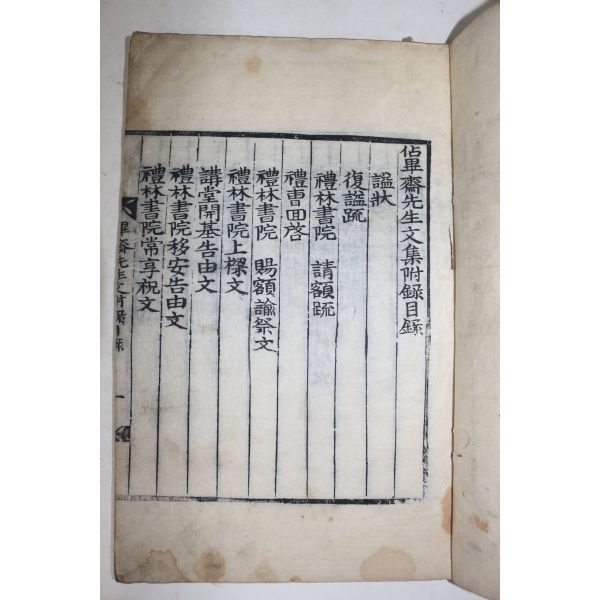 佔畢齋先生文集附錄目錄
諡狀
復諡疏
禮林書院 請額疏
禮曹回啓
禮林書院 賜額諭祭文
禮林書院上樑文
講堂開基告由文
禮林書院移安告由文
禮林書院常享祝文
畢齋先生文附錄目录 一